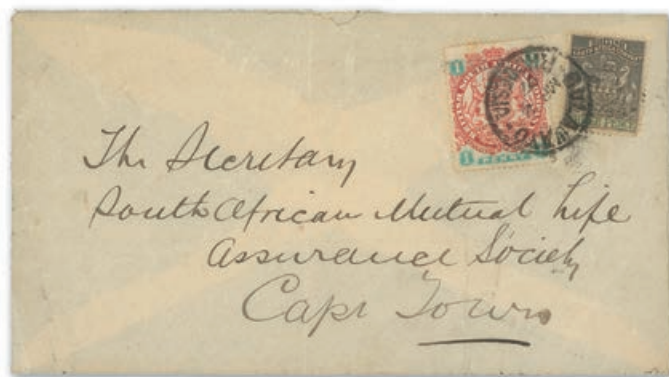 1
The Secretary
South African Mutual Life
Assurance Society
Cape Town
1 PENNY